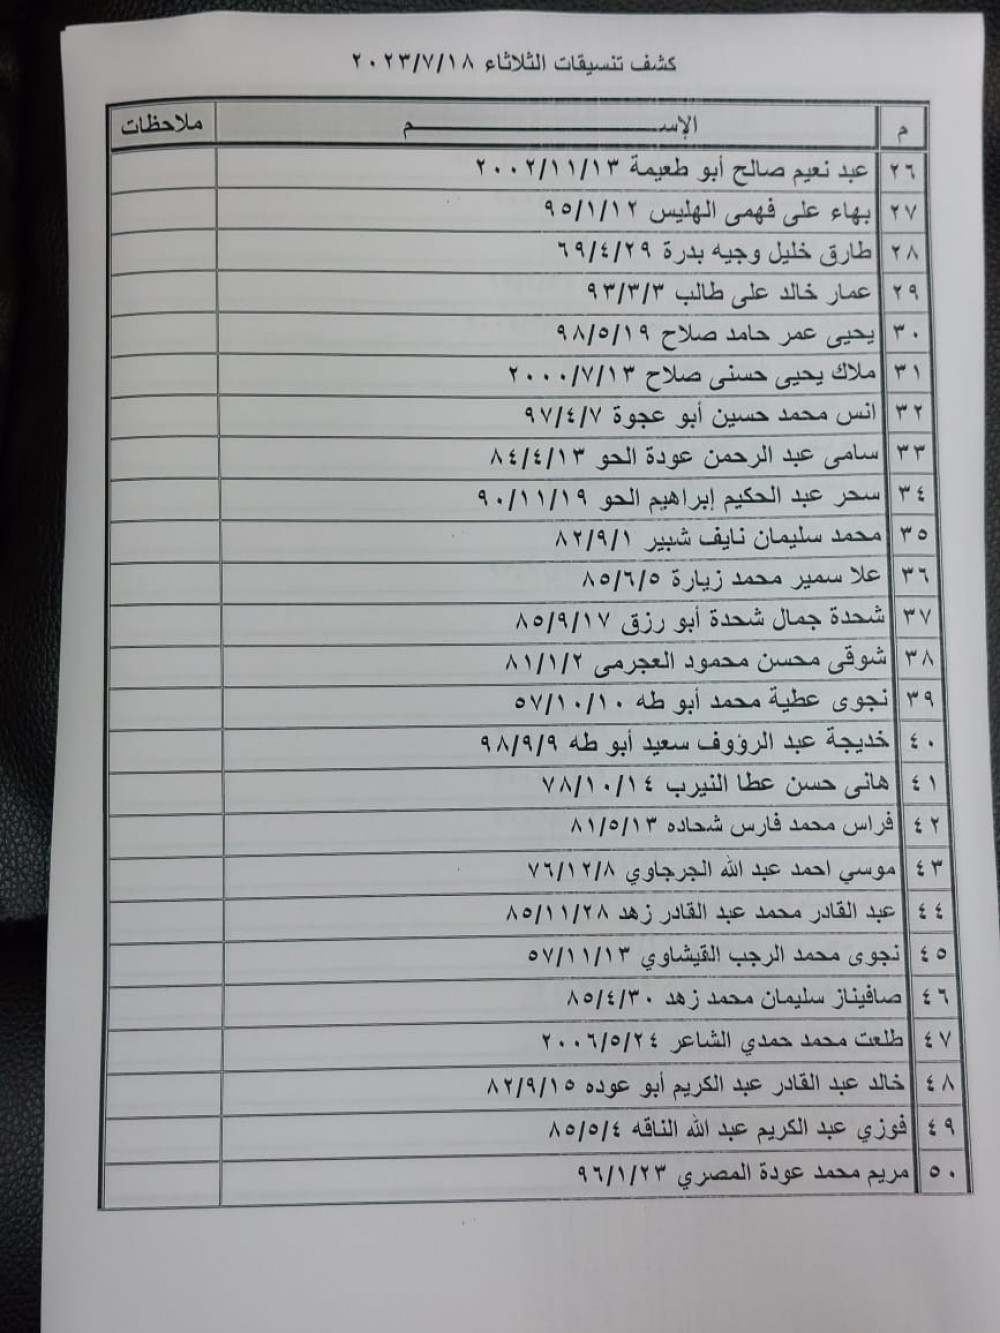 كشف تنسيقات الثلاثاء ٢٠٢٣/٧/١٨
م الإســـــــــم ملاحظات
٢٦ عبد نعيم صالح أبو طعيمة ٢٠٠٢/١١/١٣
٢٧ بهاء على فهمى الهليس ٩٥/١/١٢
٢٨ طارق خليل وجيه بدرة ٦٩/٤/٢٩
٢٩ عمار خالد على طالب ٩٣/٣/٣
٣٠ يحيى عمر حامد صلاح ٩٨/٥/١٩
٣١ ملاك يحيى حسنى صلاح ٢٠٠٠/٧/١٣
٣٢ انس محمد حسين أبو عجوة ٩٧/٤/٧
٣٣ سامى عبد الرحمن عودة الحو ٨٤/٤/١٣
٣٤ سحر عبد الحكيم إبراهيم الحو ٩٠/١١/١٩
٣٥ محمد سليمان نايف شبير ٨٢/٩/١
٣٦ علا سمير محمد زيارة ٨٥/٦/٥
٣٧ شحدة جمال شحدة أبو رزق ٨٥/٩/١٧
٣٨ شوقى محسن محمود العجرمى ٨١/١/٢
٣٩ نجوى عطية محمد أبو طه ٥٧/١٠/١٠
٤٠ خديجة عبد الرؤوف سعيد أبو طه ٩٨/٩/٩
٤١ هانى حسن عطا النيرب ٧٨/١٠/١٤
٤٢ فراس محمد فارس شحاده ٨١/٥/١٣
٤٣ موسي احمد عبد الله الجرجاوي ٧٦/١٢/٨
٤٤ عبد القادر محمد عبد القادر زهد ٨٥/١١/٢٨
٤٥ نجوى محمد الرجب القيشاوي ٥٧/١١/١٣
٤٦ صافيناز سليمان محمد زهد ٨٥/٤/٣٠
٤٧ طلعت محمد حمدي الشاعر ٢٠٠٦/٥/٢٤
٤٨ خالد عبد القادر عبد الكريم أبو عوده ٨٢/٩/١٥
٤٩ فوزي عبد الكريم عبد الله الناقه ٨٥/٥/٤
٥٠ مريم محمد عودة المصري ٩٦/١/٢٣